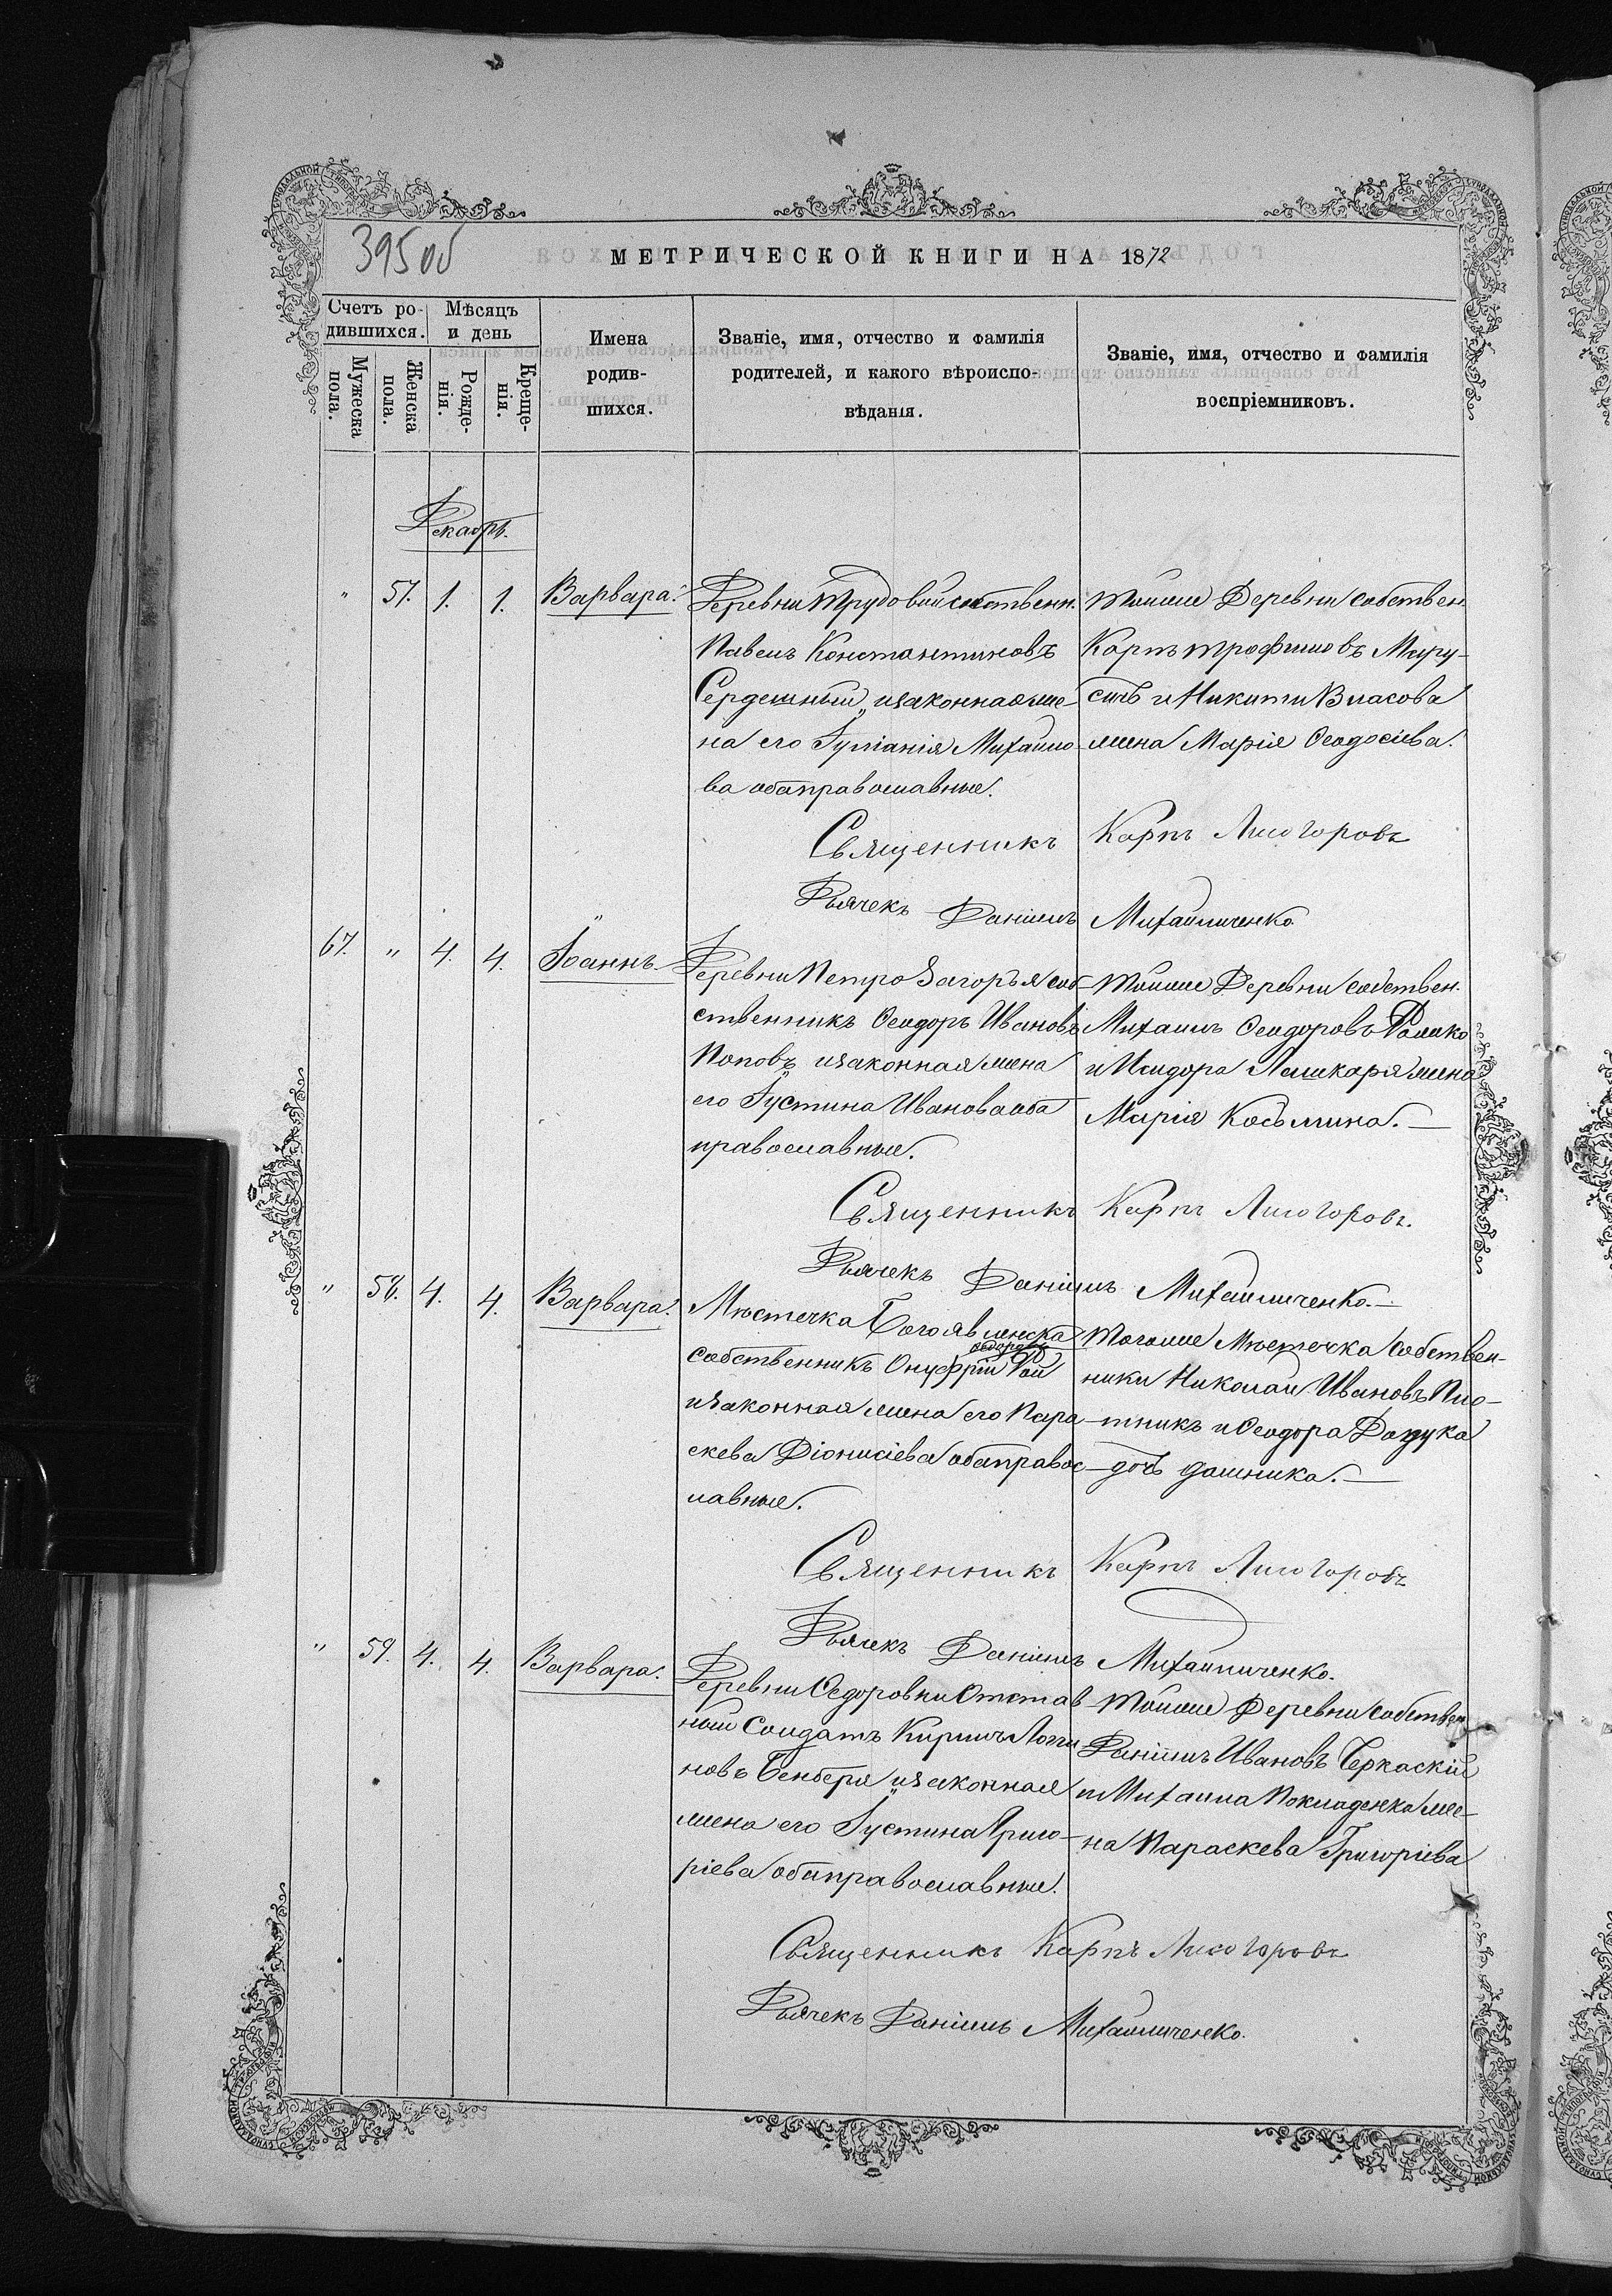 395 об
МЕТРИЧЕСКОЙ КНИГИ НА 1872
Счетъ ро-
дившихся.
Мѣсяцъ
и день
Мужеска пола.
Женска пола.
Рожде-
нія.
Креще-
нія.
Имена
родив-
шихся.
Званіе, имя, отчество и фамилія
родителей, и какого вѣроиспо-
вѣданія.
Званіе, имя, отчество и фамилія
воспріемниковъ.
Декабрь.
" 57. 1. 1. Варвара.
Деревни Трудовой собственн.
Павелъ Константиновъ
Сердешный, и законная же-
на его Іуліанія Михайло-
ва оба православные.
Тойже Деревни собствен.
Карпъ Трофимовъ Мару-
сичъ и Никити Власова
жена Марія Ѳеодосіева.
Священникъ Карпъ Лисогоровъ
Дьячекъ Даніилъ Михайличенко
67. " 4. 4. Іоаннъ.
Деревни Петро Загорья соб-
ственникъ Ѳеодоръ Ивановъ
Поповъ и законная жена
его Іустина Иванова оба
православные.
Тойже Деревни собствен.
Михаилъ Ѳеодоровъ
и Исидора Лашкаря жена
Марія Косьмина.—
Священникъ Карпъ Лисогоровъ.
Дьячекъ Даніилъ Михайличенко.—
" 58. 4. 4. Варвара.
Мѣстечка Богоявленска
Ѳедоровъ
собственникъ Онуфрій
и законная жена его Пара-
скева Діонисіева оба правос-
лавные.
Тогоже Мѣстечка собствен-
ники Николай Ивановъ Пло-
тникъ и Ѳеодора
дочь
Священникъ Карпъ Лисогоровъ
Дьячекъ Даніилъ Михайличенко.
" 59. 4. 4. Варвара.
Деревни Ѳедоровки Отстав
ный Солдатъ Кирилъ Логги
новъ и законная
жена его Іустина Григо-
ріева оба православные.
Тойже Деревни собствен
Даніилъ Ивановъ Черкаскій
и Михаила Покладенка же-
на Параскева Григоріева
Священникъ Карпъ Лисогоровъ
Дьячекъ Даніилъ Михайличенко.